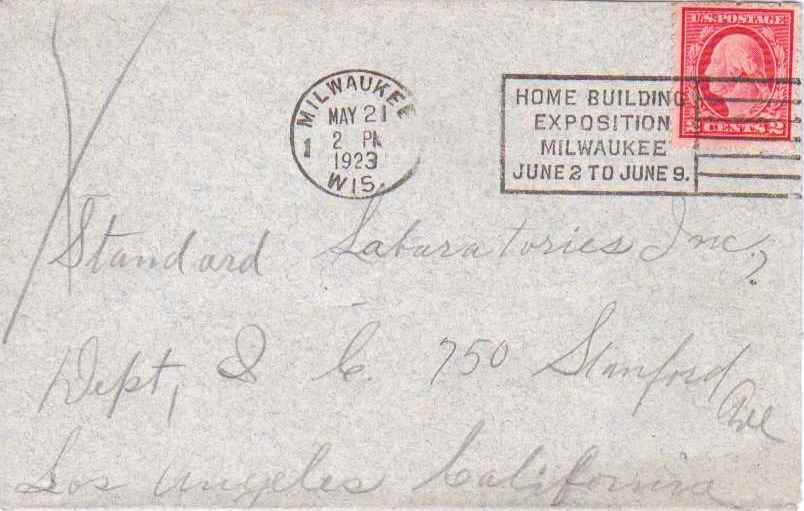 U.S. POSTAGE
2 CENTS 2
MILWAUKEE
MAY 21
1 2 PM
1923
WIS.
HOME BUILDING
EXPOSITION
MILWAUKEE
JUNE 2 TO JUNE 9.
Standard Labaratories Inc,
Dept, & C. 750 Stanford Ave
Los Angeles California